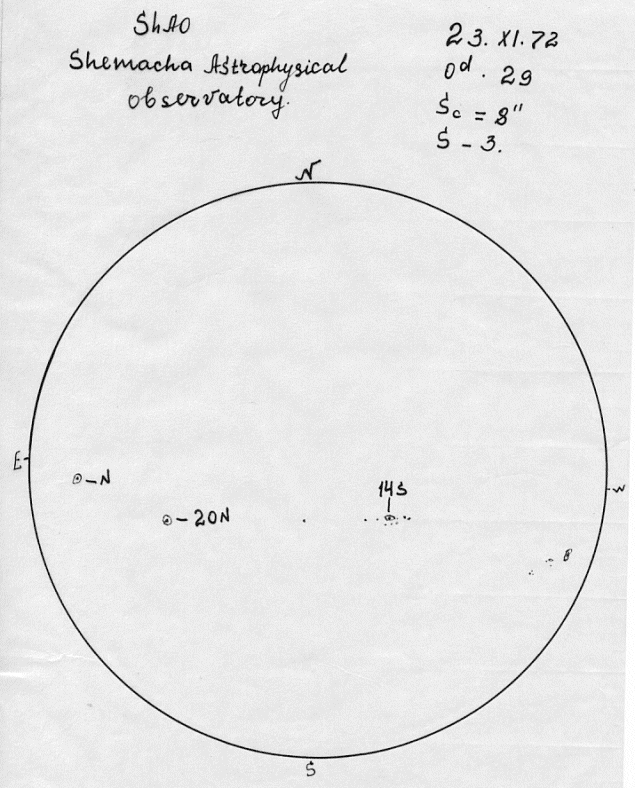 ShAO
Shemacha Astrophysical
observatory.
23. XI. 72
0d. 29
Sc = 8"
S - 3.
N
E
-N
14S
W
-20N
S